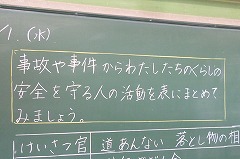 1.(水)
事故や事件からわたしたちのくらしの
安全を守る人の活動を表にまとめて
みましょう。
けいさつ官 道あんない 落とし物の相